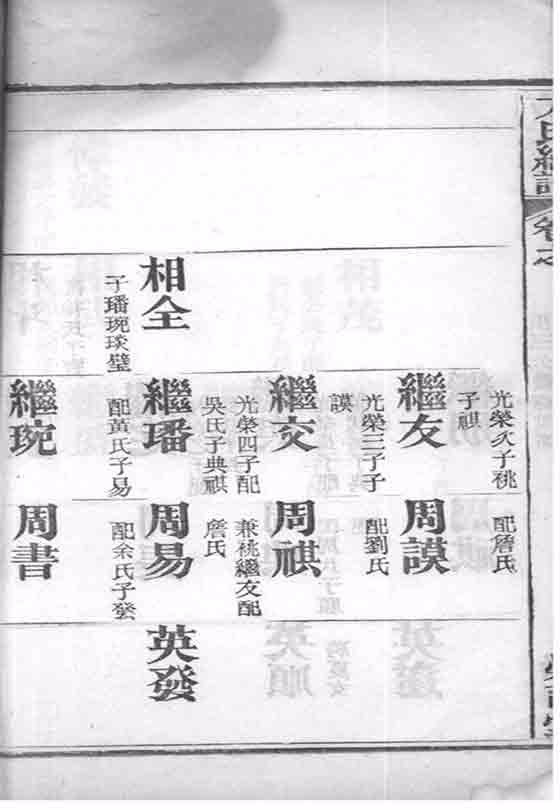 氏總譜
卷之
相全
子璠琬琰璧
光榮次子祧
子祺
繼友
光榮三子子
謨
繼交
光榮四子配
吳氏子典祺
繼璠
配黃氏子易
繼琬
配詹氏
周謨
配劉氏
周祺
兼祧繼友配
詹氏
周易
配余氏子發
周書
英發